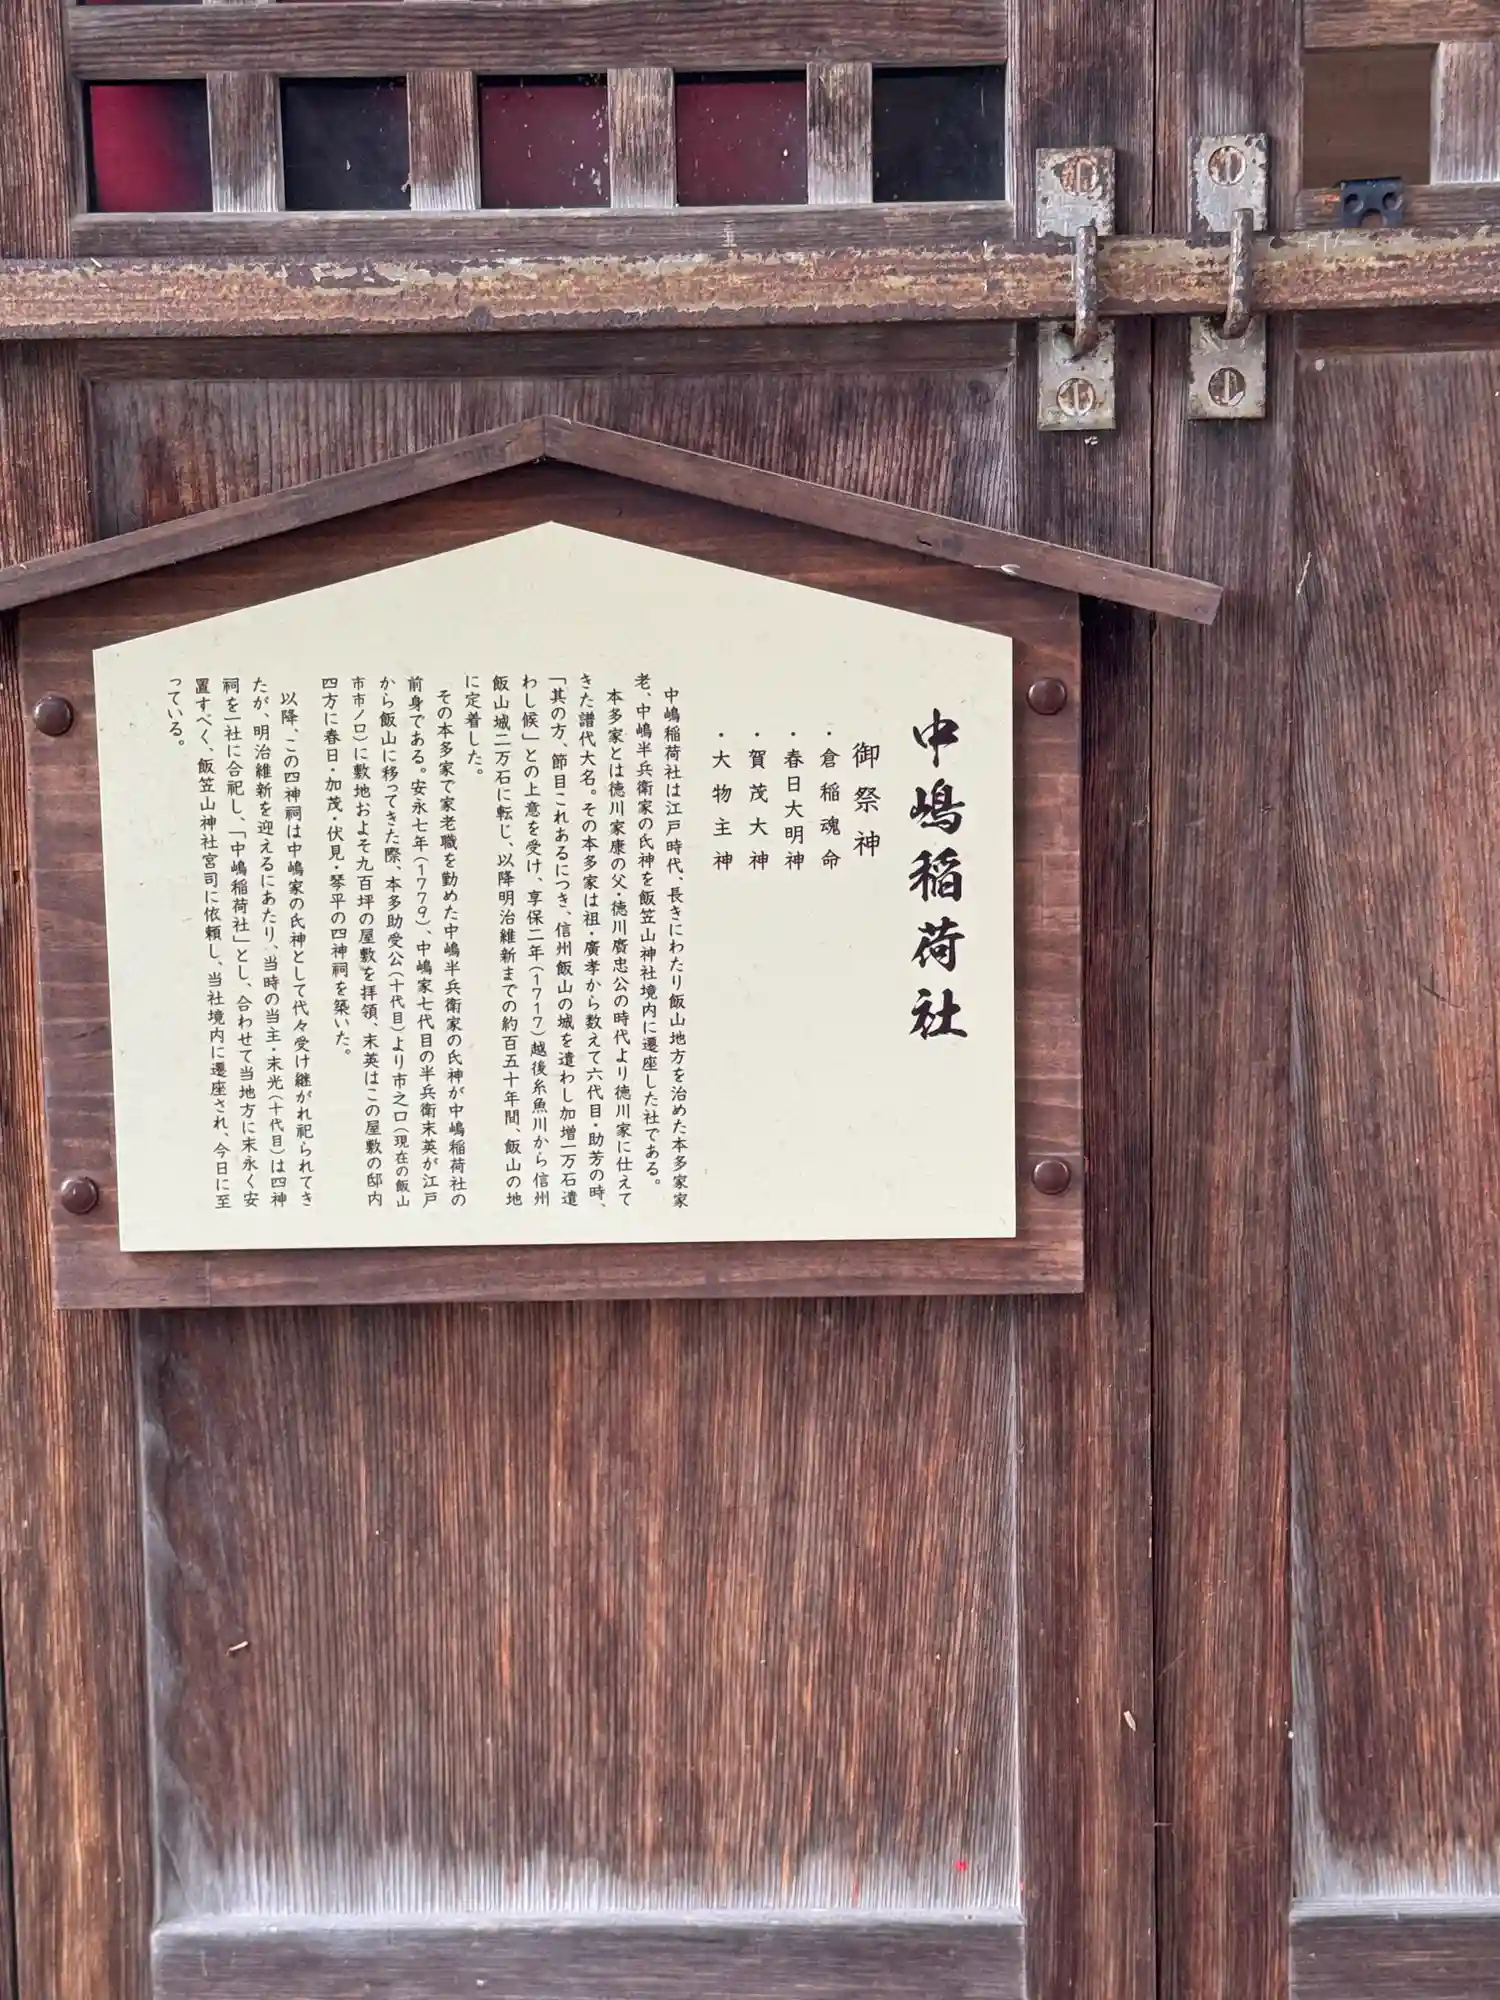 中嶋稲荷社
御祭神
・倉稲魂命
・春日大明神
・賀茂大神
・大物主神
中嶋稲荷社は江戸時代、長きにわたり飯山地方を治めた本多家家
老、中嶋半兵衛家の氏神を飯笠山神社境内に遷座した社である。
本多家とは徳川家康の父・徳川廣忠公の時代より徳川家に仕えて
きた譜代大名。その本多家は祖・廣孝から数えて六代目・助芳の時、
「其の方、節目これあるにつき、信州飯山の城を遣わし加増一万石遣
わし候」との上意を受け、享保二年(1717)越後糸魚川から信州
飯山城二万石に転じ、以降明治維新までの約百五十年間、飯山の地
に定着した。
その本多家で家老職を勤めた中嶋半兵衛家の氏神が中嶋稲荷社の
前身である。安永七年(1779)、中嶋家七代目の半兵衛末英が江戸
から飯山に移ってきた際、本多助受公(十代目)より市之口(現在の飯山
市市ノ口)に敷地およそ九百坪の屋敷を拝領、末英はこの屋敷の邸内
四方に春日・加茂・伏見・琴平の四神祠を築いた。
以降、この四神祠は中嶋家の氏神として代々受け継がれ祀られてき
たが、明治維新を迎えるにあたり、当時の当主・末光(十代目)は四神
祠を一社に合祀し、「中嶋稲荷社」とし、合わせて当地方に末永く安
置すべく、飯笠山神社宮司に依頼し、当社境内に遷座され、今日に至
っている。